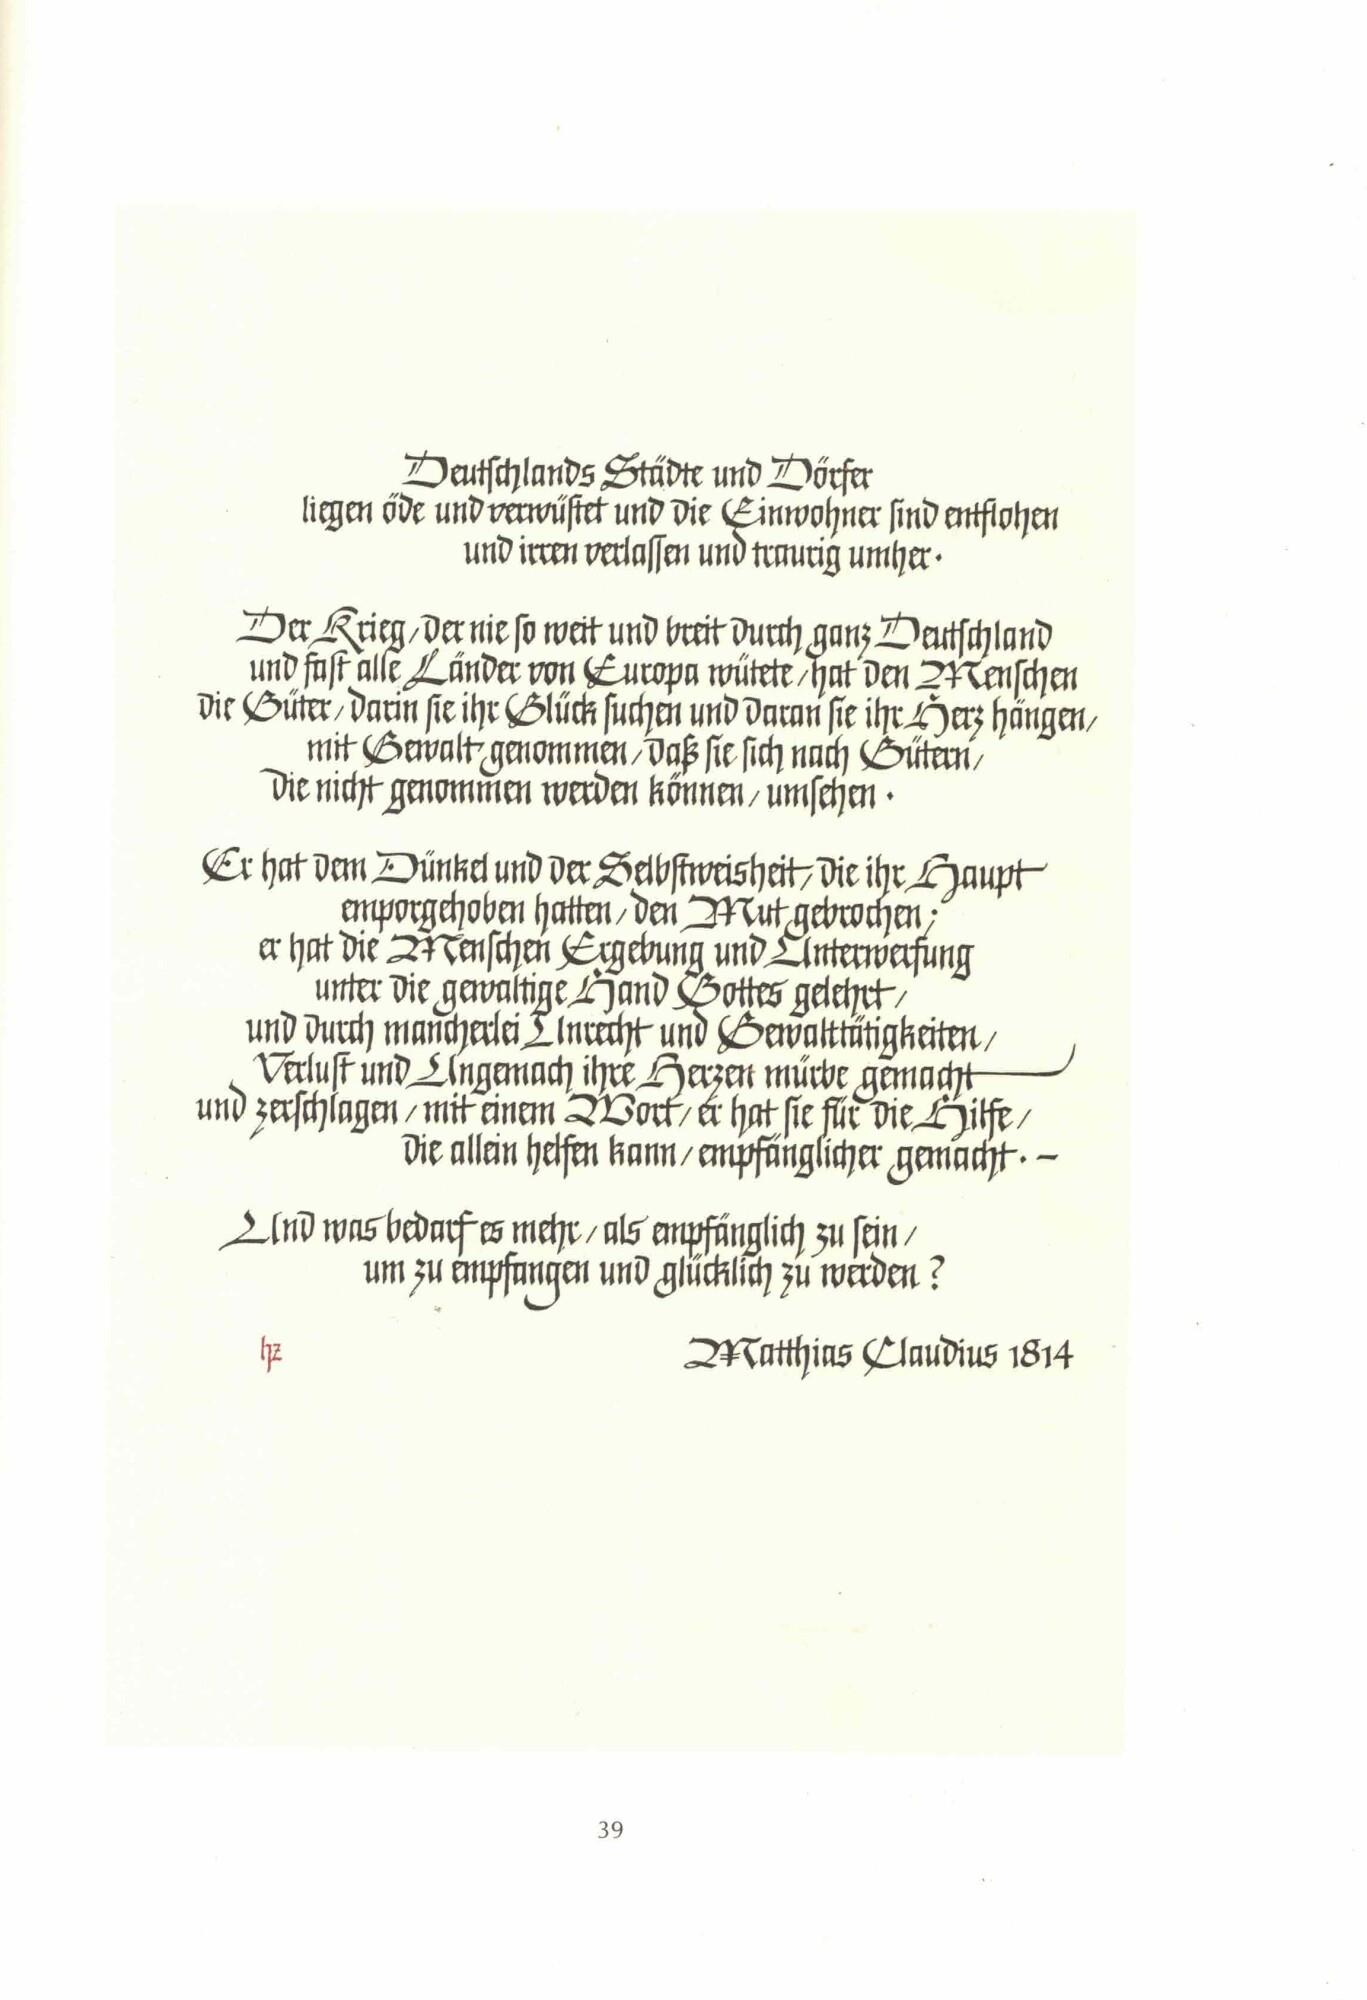 Deutschlands Städte und Dörfer
liegen öde und verwüstet und die Einwohner sind entflohen
und irren verlassen und traurig umher.
Der Krieg/der nie so weit und breit durch ganz Deutschland
und fast alle Länder von Europa wütete/hat den Menschen
die Güter/darin sie ihr Glück suchen und daran sie ihr Herz hängen/
mit Gewalt genommen/daß sie sich nach Gütern/
die nicht genommen werden können/umsehen.
Er hat dem Dünkel und der Selbstweisheit/die ihr Haupt
emporgehoben hatten/den Mut gebrochen;
er hat die Menschen Ergebung und Unterwerfung
unter die gewaltige Hand Gottes gelehrt/
und durch mancherlei Unrecht und Gewalttätigkeiten/
Verlust und Ungemach ihre Herzen mürbe gemacht
und zerschlagen/mit einem Wort/er hat sie für die Hilfe/
die allein helfen kann/empfänglicher gemacht.–
Und was bedarf es mehr/als empfänglich zu sein/
um zu empfangen und glücklich zu werden?
hz Matthias Claudius 1814
39